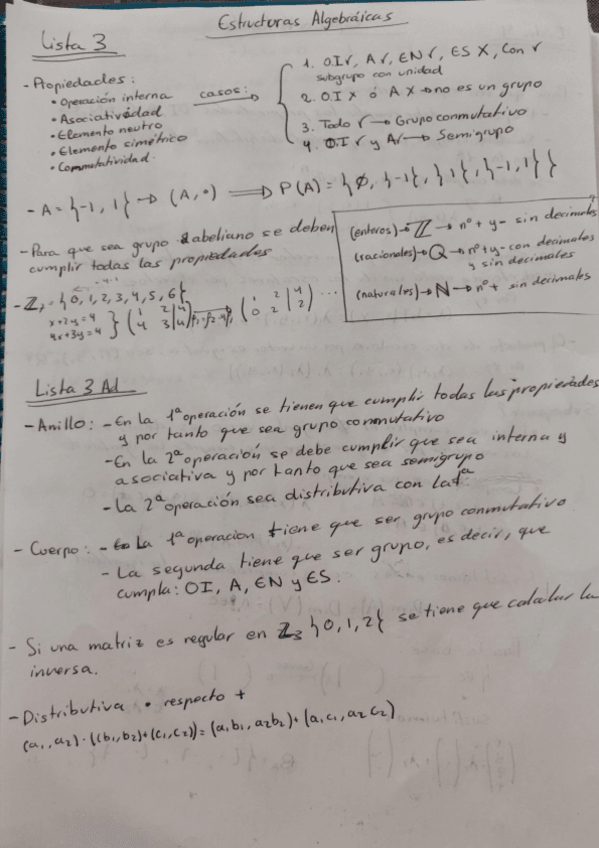 Estructuras Algebráicas
Lista 3
- Propiedades:
• Operación interna
• Asociatividad
• Elemento neutro
• Elemento simétrico
• Conmutatividad.
casos:
1. O.I ✓, A ✓, EN ✓, ES X, Con ✓
subgrupo con unidad
2. O.I X ó A X → no es un grupo
3. Todo ✓ → Grupo conmutativo
4. O.I ✓ y A ✓ → Semigrupo
- A = {-1, 1} → (A, •) ⟹ P(A) = {∅, {-1}, {1}, {-1, 1}}
- Para que sea grupo abeliano se deben
cumplir todas las propiedades
(enteros) → ℤ → nº + y - sin decimales
(racionales) → Q → nº + y - con decimales
y sin decimales
(naturales) → N → nº + sin decimales
= {0, 1, 2, 3, 4, 5, 6}
x+2y=4
4x+3y=4 } (1 2 | 4
4 3 | 4) (1 2 | 4
0 2 | 2) ...
Lista 3 Ad
- Anillo: - En la 1ª operación se tienen que cumplir todas las propiedades
y por tanto que sea grupo conmutativo
- En la 2ª operación se debe cumplir que sea interna y
asociativa y por tanto que sea semigrupo
- La 2ª operación sea distributiva con la 1ª.
- Cuerpo: - La 1ª operacion tiene que ser grupo conmutativo
- La segunda tiene que ser grupo, es decir, que
cumpla: OI, A, EN y ES.
- Si una matriz es regular en ℤ₃ {0, 1, 2} se tiene que calcular la
inversa.
- Distributiva • respecto +
(a₁, a₂) · ((b₁, b₂) + (c₁, c₂)) = (a₁b₁, a₂b₂) + (a₁c₁, a₂c₂)